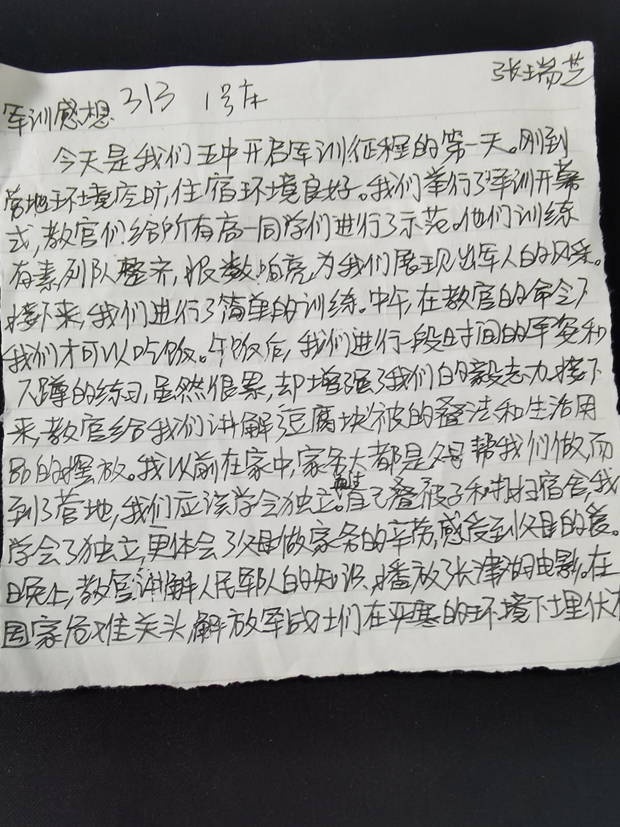 张瑞芝
军训感想 313 1号床
今天是我们五中开启军训征程的第一天。刚到
营地环境空旷,住宿环境良好。我们举行了军训开幕
式,教官们给所有高一同学们进行了示范。他们训练
有素,列队整齐,报数响亮,为我们展现出军人的风采。
接下来,我们进行了简单的训练。中午,在教官的命令下
我们才可以吃饭。午饭后,我们进行一段时间的军姿和
下蹲的练习,虽然很累,却增强了我们的毅志力。接下
来,教官给我们讲解豆腐块被的叠法和生活用
品的摆放。我以前在家中,家务大都是父母帮我们做,而
到了营地,我们应该学会独立。通过自己叠被子和打扫宿舍,我
学会了独立,更体会了父母做家务的辛劳,感受到父母的爱。
晚上,教官讲解人民军队的知识,播放了长津湖电影。在
国家危难关头,解放军战士们在严寒的环境下埋伏在